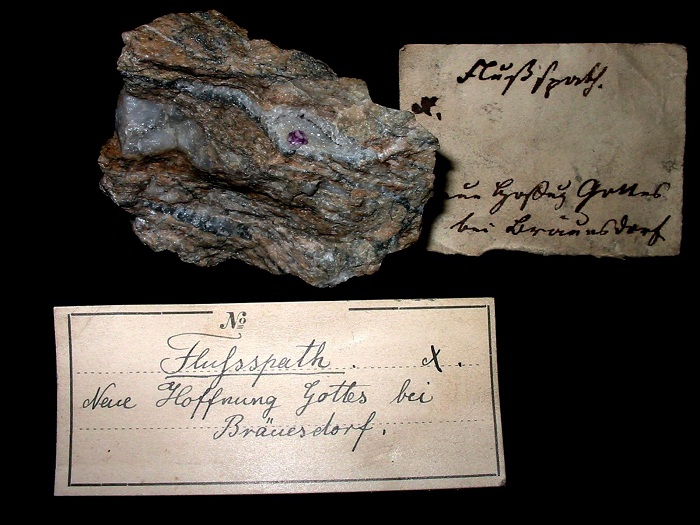 Flußspath.
x.
Gottes
bei Bräunsdorf
No
Flufsspath. x.
Neue Hoffnung Gottes bei
Bräuesdorf.